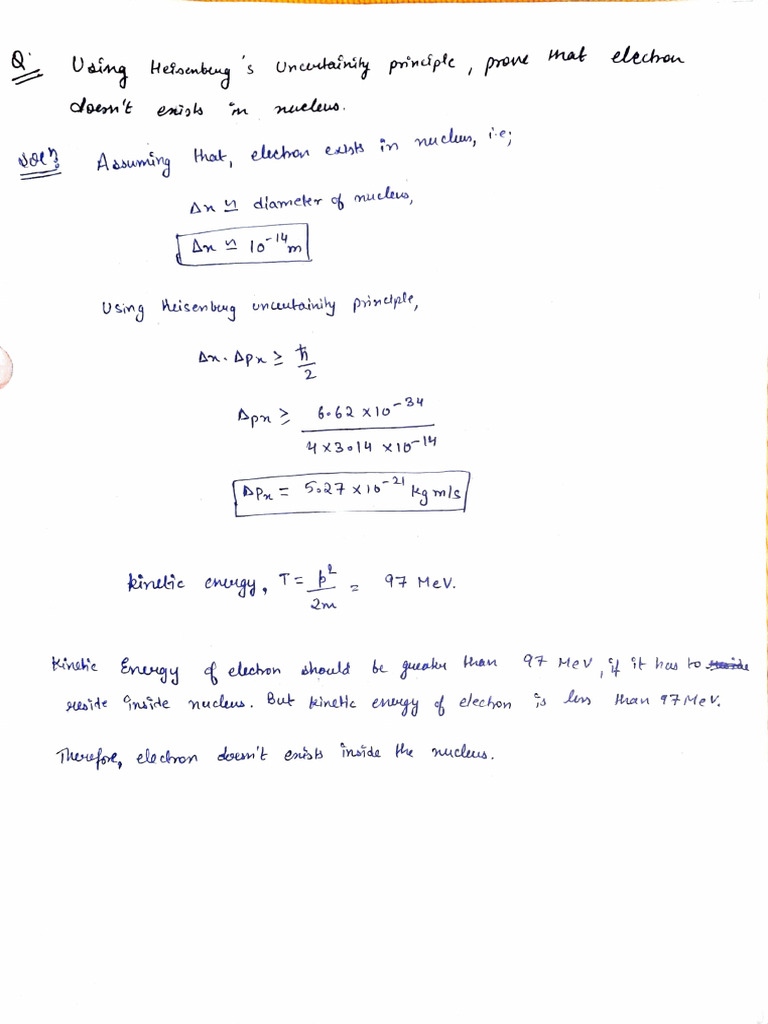 Q: Using Heisenberg's Uncertainity principle, prove that electron
doesn't exists in nucleus.
Soln: Assuming that, electron exists in nucleus, i.e;
Δx ≃ diameter of nucleus,
Δx ≃ 10⁻¹⁴ m
Using Heisenberg uncertainity principle,
Δx . Δpx ≥ ħ/2
Δpx ≥ 6.62 × 10⁻³⁴ / 4 × 3.14 × 10⁻¹⁴
Δpx = 5.27 × 10⁻²¹ kg m/s
kinetic energy, T = p²/2m = 97 MeV.
Kinetic Energy of electron should be greater than 97 MeV, if it has to
reside inside nucleus. But kinetic energy of electron is less than 97 MeV.
Therefore, electron doesn't exists inside the nucleus.